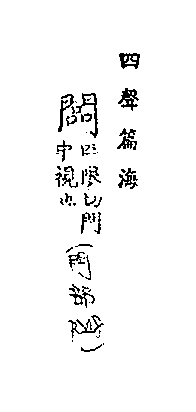 四聲篇海
限切門
中視也
(門部)